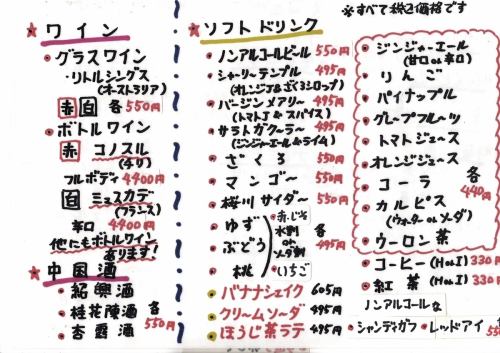 *すべて税込価格です
★ワイン
・グラスワイン
・リトルシングス
(オーストラリア)
赤 白 各550円
・ボトルワイン
赤 コノスル
(チリ)
フルボディ 4400円
白 ミュスカデ
(フランス)
辛口 4400円
他にもボトルワイン
あります!
★中国酒
・紹興酒
・桂花陳酒 各
・杏露酒 550円
★ソフトドリンク
・ノンアルコールビール 550円
・シャーリーテンプル 495円
(オレンジJ&ざくろシロップ)
・バージンメアリー 495円
(トマトJ & スパイス)
・サラトガクーラー 495円
(ジンジャーエール&ライム)
・ざくろ 550円
・マンゴー 550円
・桜川サイダー 550円
・ゆず
・ぶどう
・桃
・赤じそ
水割
or
ソーダ割
・いちご
各
495円
・バナナシェイク 605円
・クリームソーダ 495円
・ほうじ茶ラテ 495円
・ジンジャーエール
(甘口or辛口)
・りんご
・パイナップル
・グレープフルーツ
・トマトジュース
・オレンジジュース
・コーラ 各
440円
・カルピス
(ウォーターorソーダ)
・ウーロン茶
・コーヒー(HorI) 330円
・紅茶 (HorI) 330
ノンアルコールな
・シャンディガフ ・レッドアイ 55